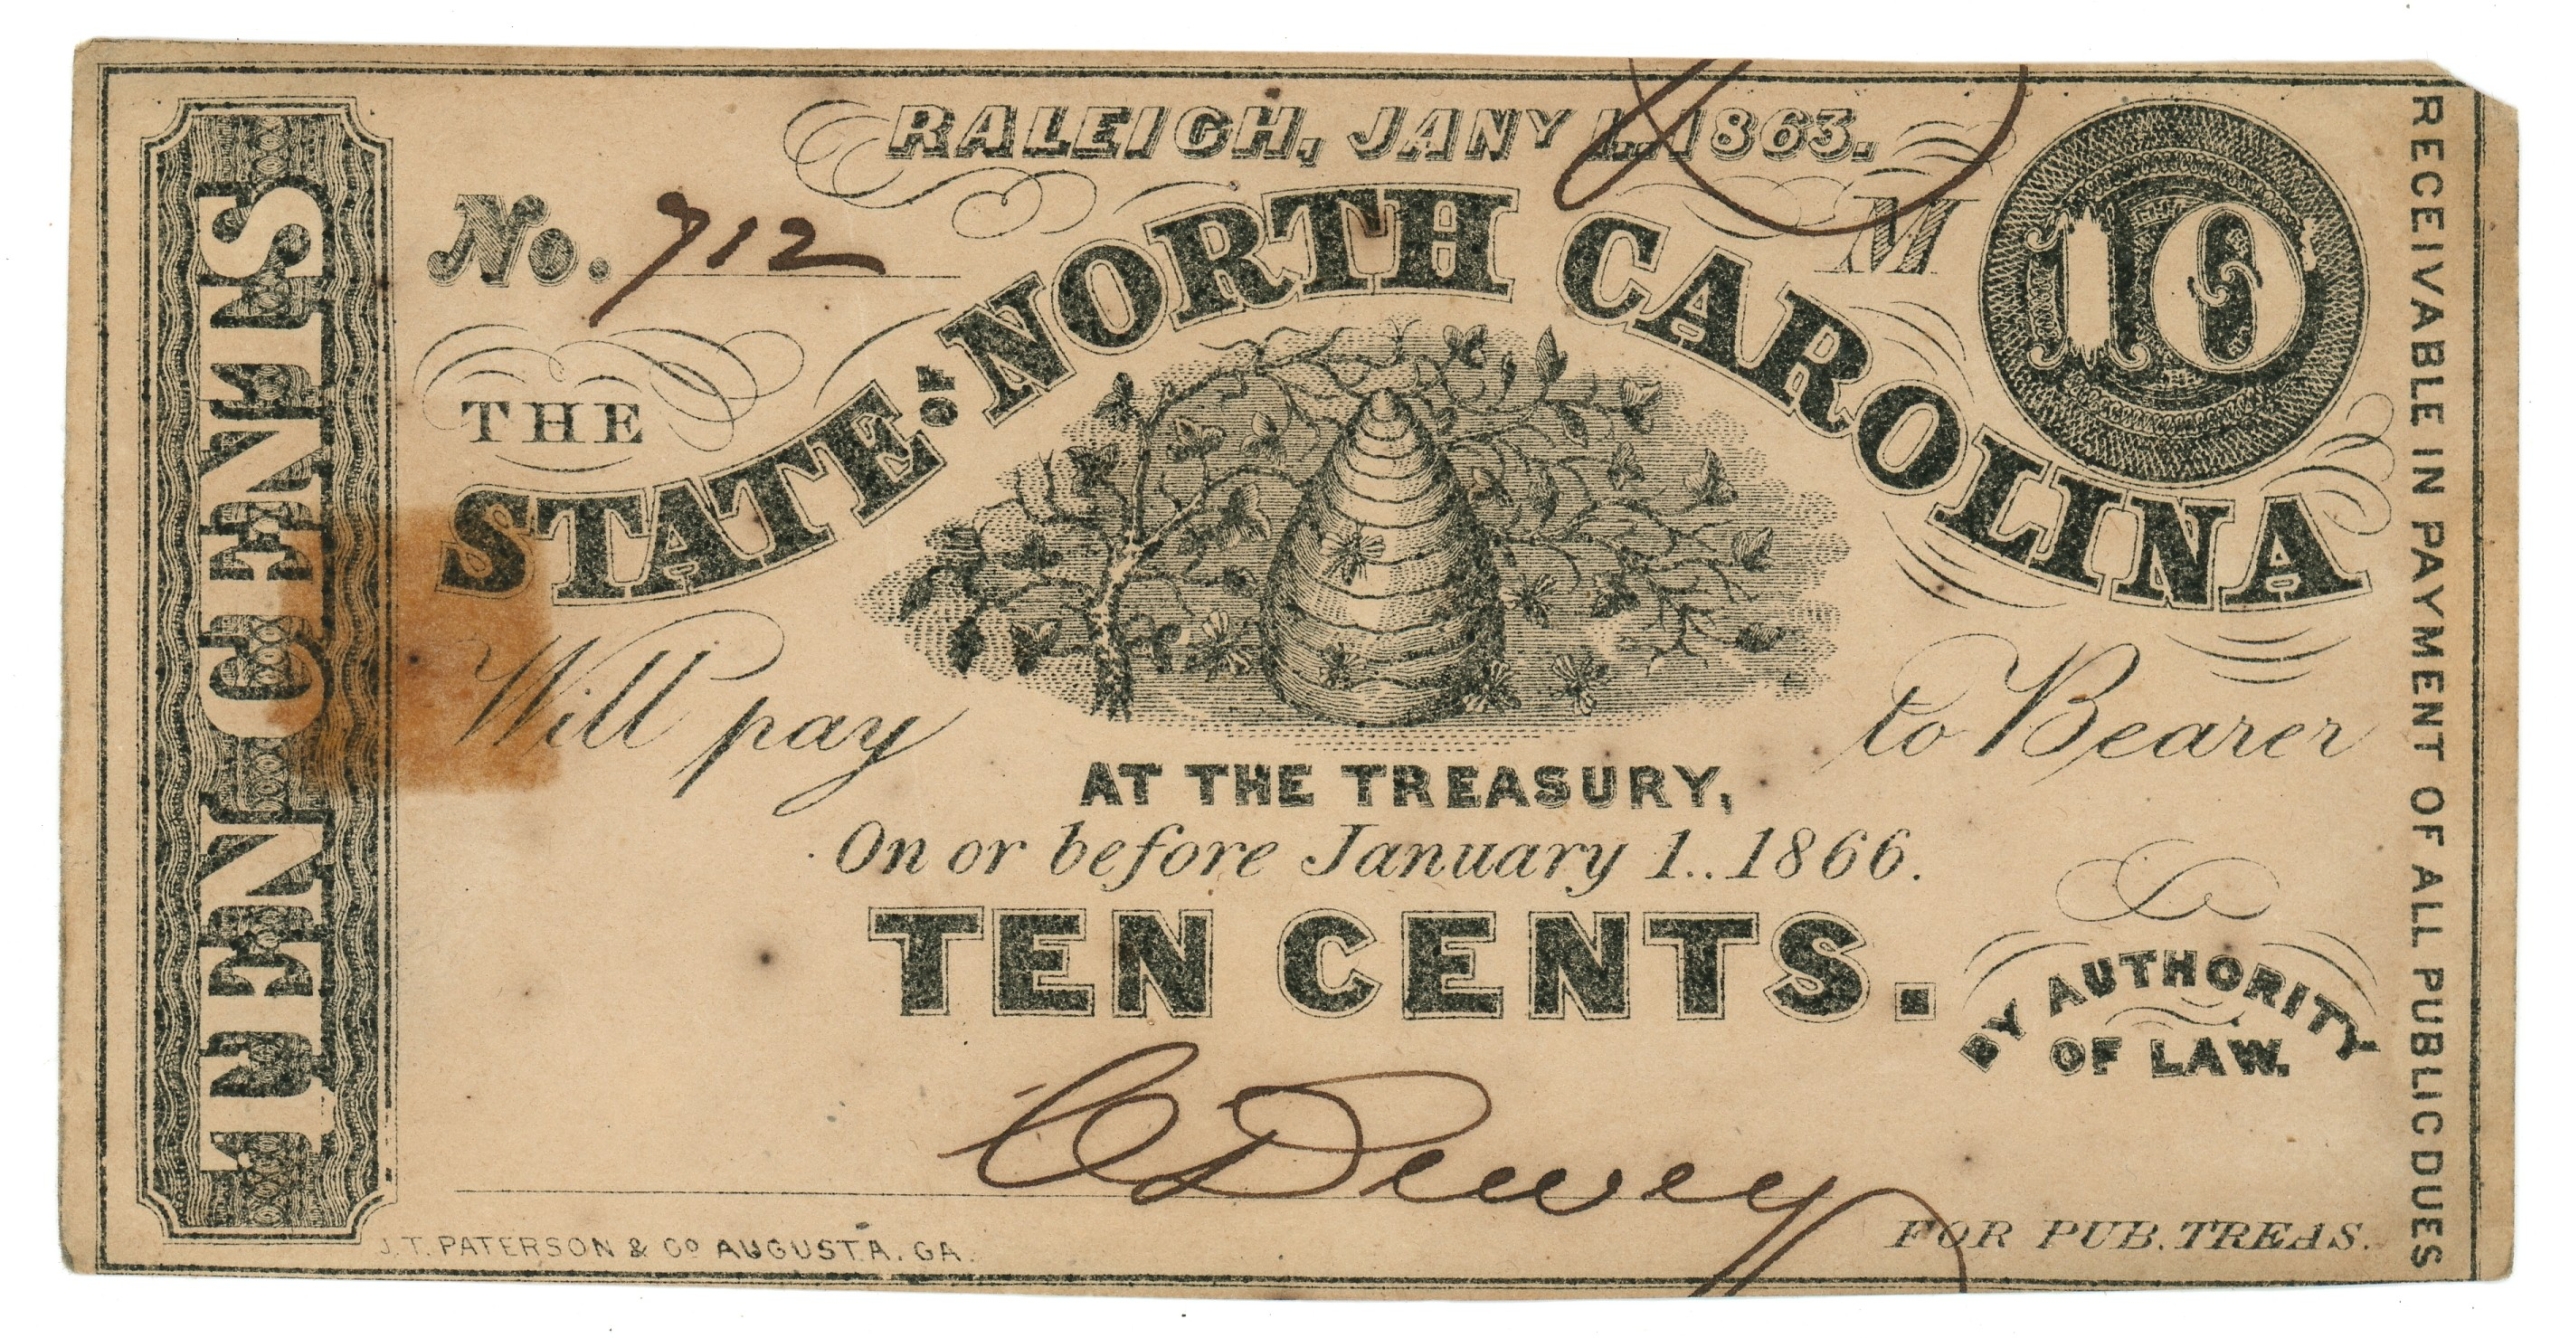 RALEIGH, JANY 1. 1863.
No. 712
M
10
THE
STATE OF NORTH CAROLINA
Will pay
to Bearer
AT THE TREASURY,
On or before January 1. 1866.
TEN CENTS.
BY AUTHORITY
OF LAW.
C Dewey
FOR PUB. TREAS.
J. T. PATERSON & CO AUGUSTA. GA.
TEN CENTS
RECEIVABLE IN PAYMENT OF ALL PUBLIC DUES